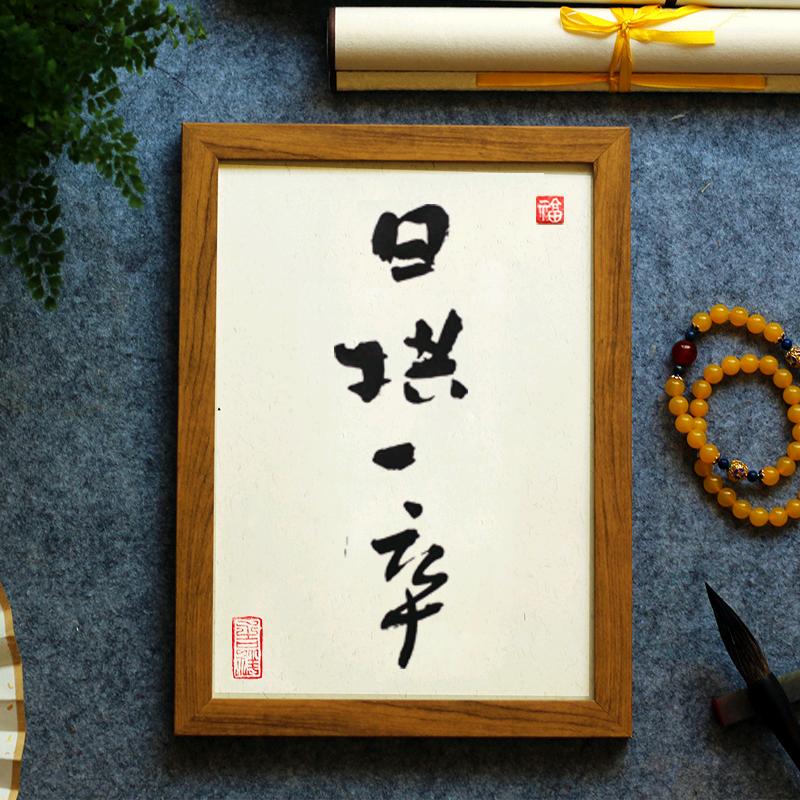 日拱一卒
福